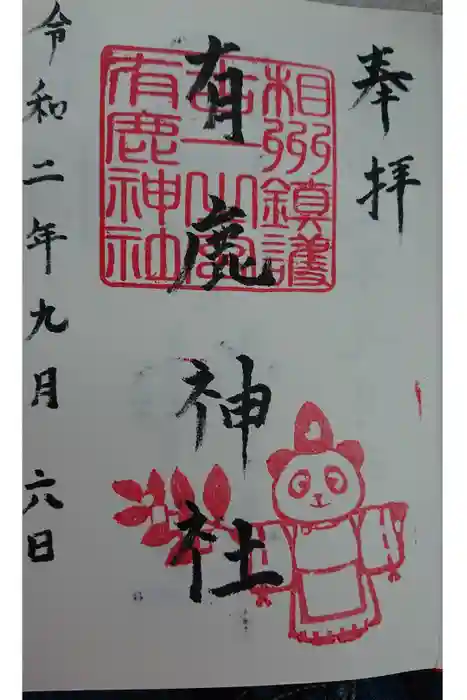 奉拝
有鹿神社
令和二年九月六日
相州鎮護
有鹿神社